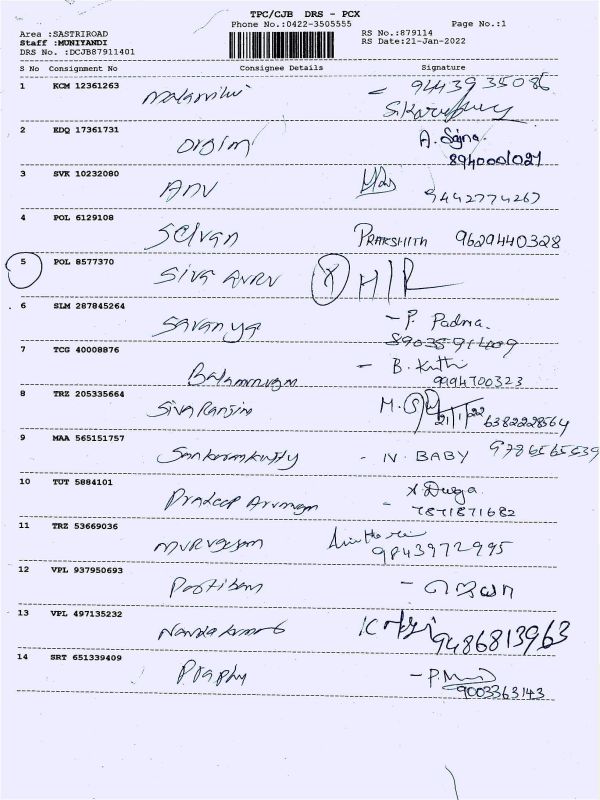 TPC/CJB DRS - PCX
Phone No.:0422-3505555 Page No.:1
Area :SASTRIROAD RS No.:879114
Staff :MUNIYANDI RS Date:21-Jan-2022
DRS No. :DCJB87911401
S No Consignment No Consignee Details Signature
1 KCM 12361263 9443935086
2 EDQ 17361731 A. Sajna
8940001021
3 SVK 10232080 ANV 9442774267
4 POL 6129108 Selvan PRAKSHITH 9629440328
5 POL 8577370 Siva
6 SLM 287845264 Saranya - P. Padma.
8903591409
7 TCG 40008876 Balamurugan - B.
9994700323
8 TRZ 205335664 Siva Ranjini M. 21/1/22 6382228564
9 MAA 565151757 Sankarankutty - N. BABY 9786565639
10 TUT 5884101 Pradeep Arumugam Durga
- 7871871682
11 TRZ 53669036 Murugesan
9843972995
12 VPL 937950693 Partiban -
13 VPL 497135232 Nanda kumar 9486813963
14 SRT 651339409 Praphy - P.
9003363143